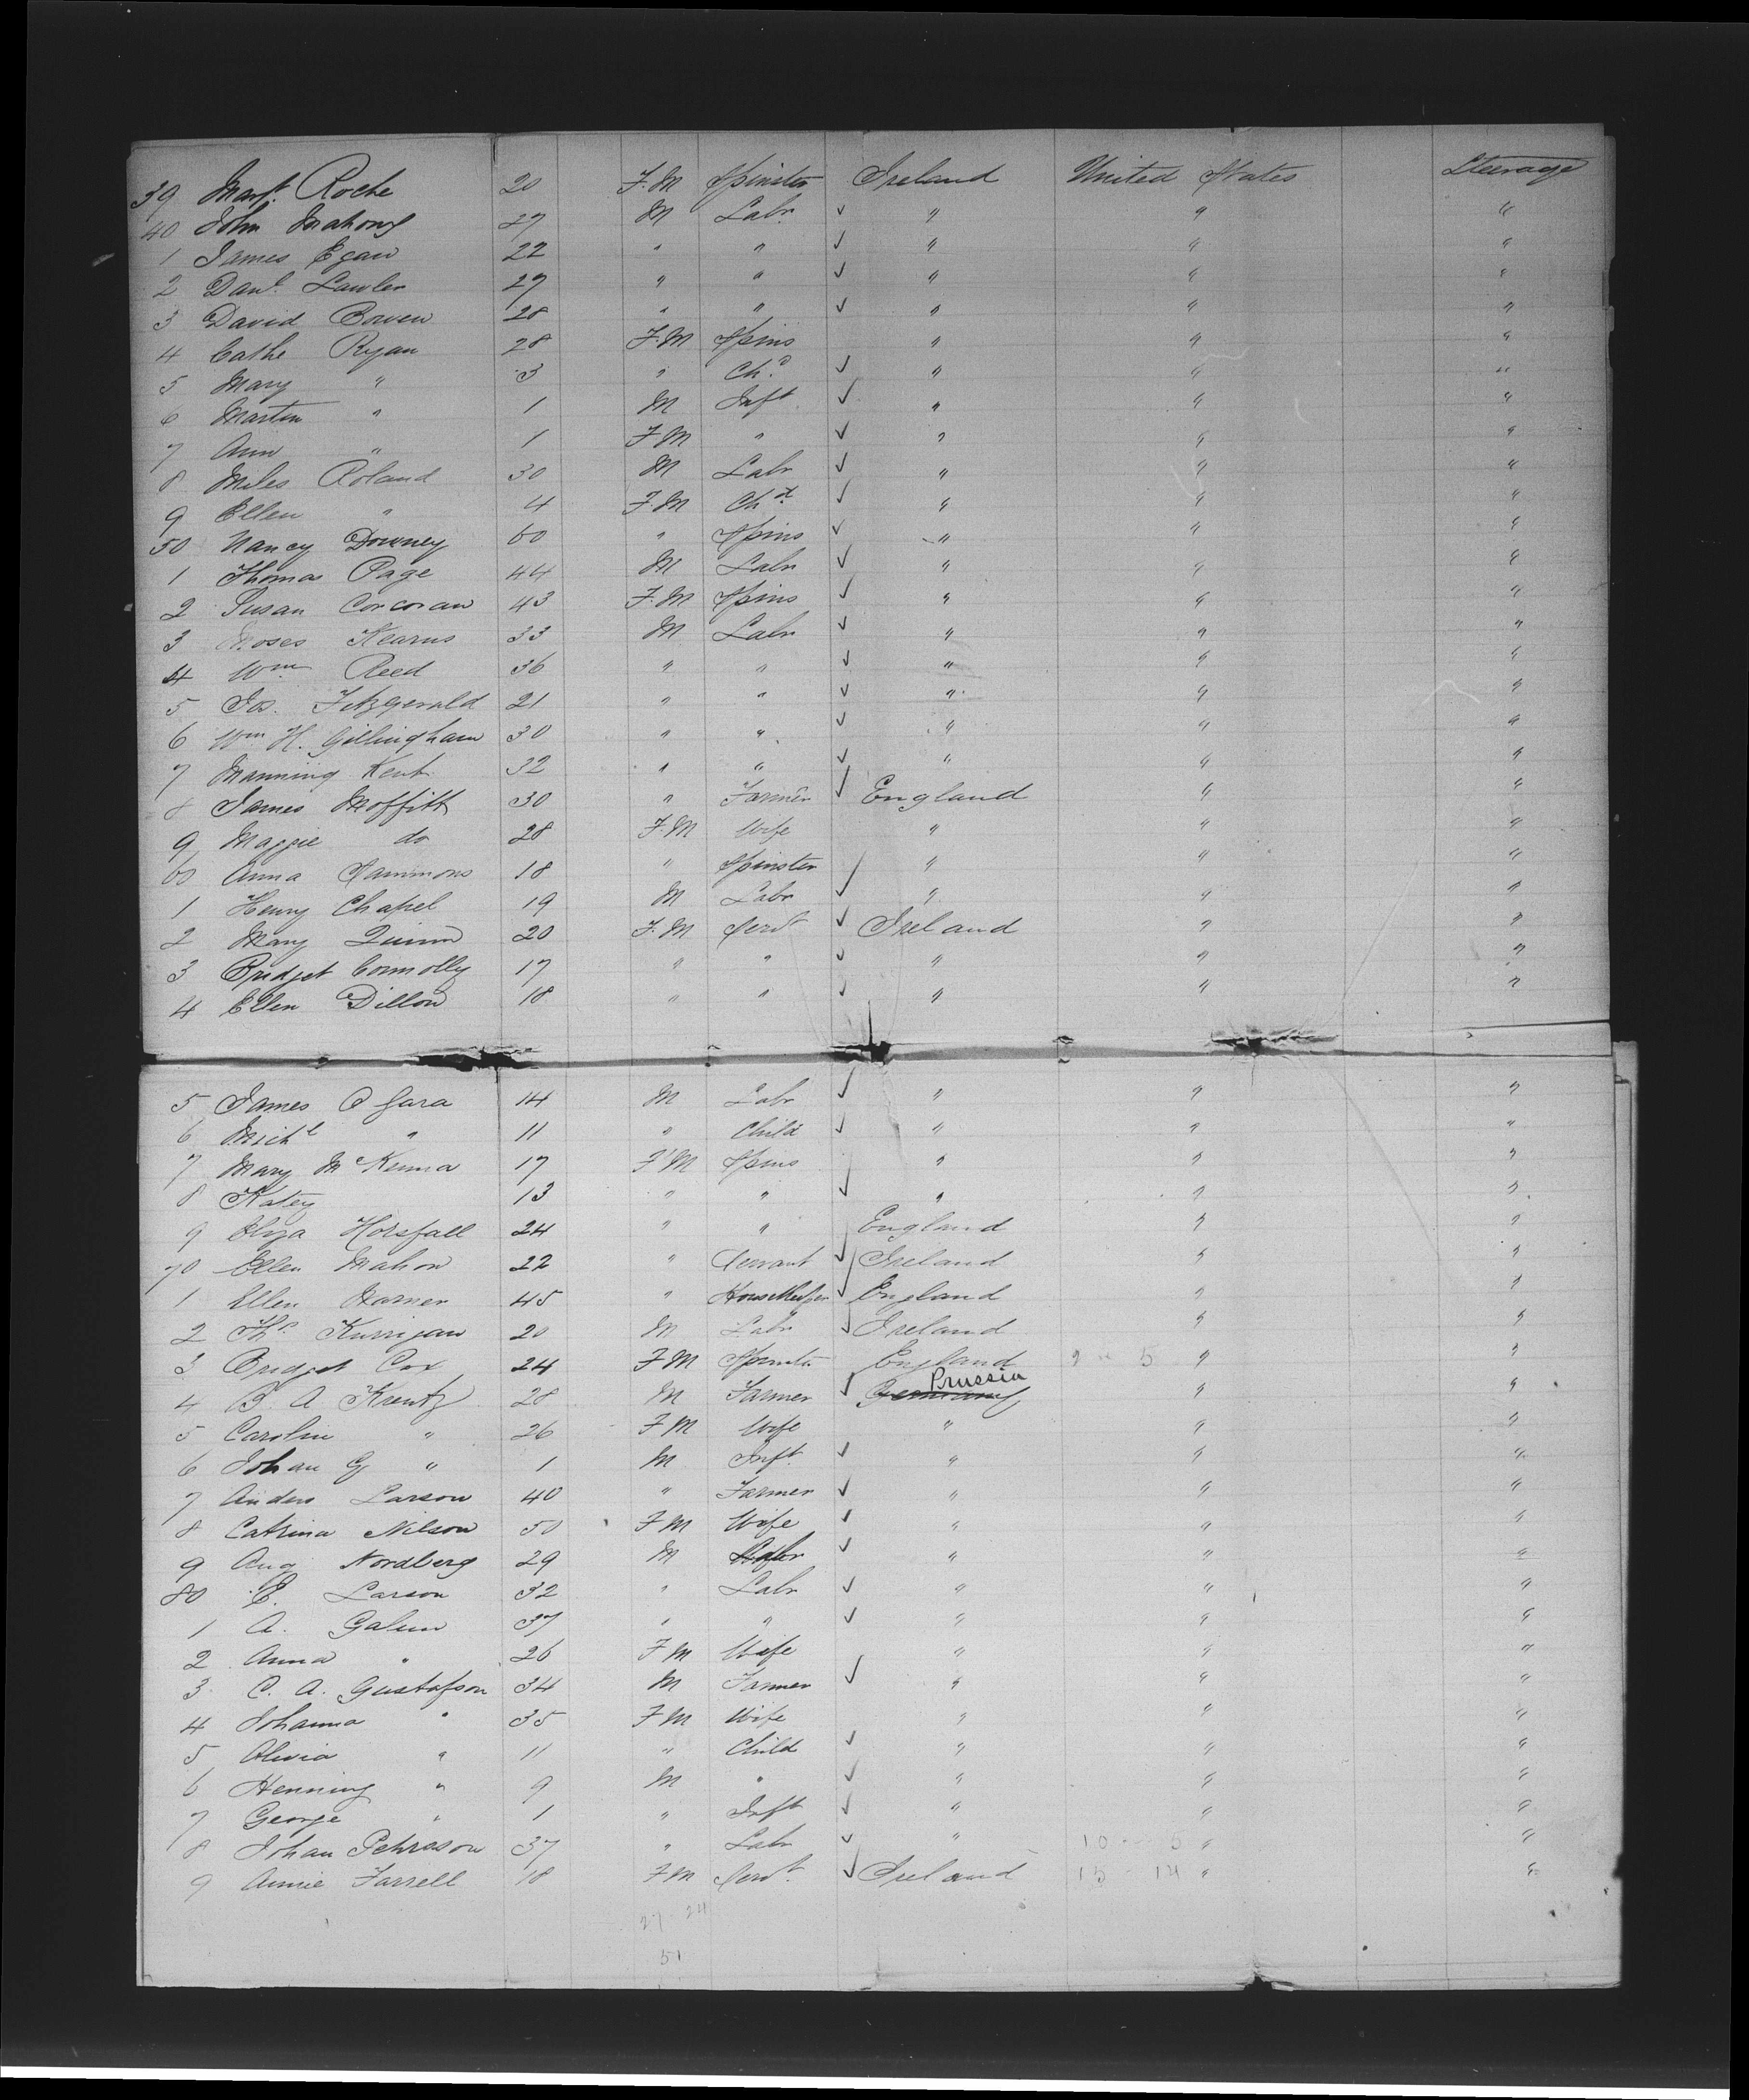 39 Margt. Roche 20 F.M Spinster Ireland United States Steerage
40 John Mahony 27 M Labr. ✓ " " "
1 James Egan 22 " " ✓ " " "
2 Danl. Lawler 27 " " ✓ " " "
3 David Bowen 28 " " ✓ " " "
4 Cathe Ryan 28 F.M Spins " " "
5 Mary " 3 " Chd ✓ " " "
6 Martin " 1 M Inft ✓ " " "
7 Ann " 1 F M " ✓ " " "
8 Miles Roland 30 M Labr ✓ " " "
9 Ellen " 4 F M Chd ✓ " " "
50 Nancy Downey 60 " Spins ✓ " " "
1 Thomas Page 44 M Labr ✓ " " "
2 Susan Corcoran 43 F.M Spins ✓ " " "
3 Moses Kearns 33 M Labr ✓ " " "
4 Wm Reed 36 " " ✓ " " "
5 Jos. Fitzgerald 21 " " ✓ " " "
6 Wm H. Gillingham 30 " " ✓ " " "
7 Manning Kent 32 " " ✓ " " "
8 James Moffitt 30 " Farmer ✓ England " "
9 Maggie do 28 F.M Wife " " "
60 Anna Sammons 18 " Spinster ✓ " " "
1 Henry Chapel 19 M Labr ✓ " " "
2 Mary Quinn 20 F.M Servt ✓ Ireland " "
3 Bridget Connolly 17 " " ✓ " " "
4 Ellen Dillon 18 " " ✓ " " "
5 James O Gara 14 M Labr ✓ " " "
6 Michl " 11 " Child ✓ " " "
7 Mary McKenna 17 F M Spins " " "
8 Katey 13 " " ✓ " " "
9 Eliza Horsfall 24 " " England " "
70 Ellen Mahon 22 " Servant ✓ Ireland " "
1 Ellen 45 " HouseKeeper ✓ England " "
2 Ths Kurrigan 20 M Labr ✓ Ireland " "
3 Bridget Cox 24 F M Spinster England 9 5 " "
4 B. A Krentz 28 M Farmer ✓ Germany Prussia " "
5 Carolin " 26 F M Wife " " "
6 Johan G " 1 M Inft ✓ " " "
7 Anders Larson 40 " Farmer ✓ " " "
8 Catrina Nilson 50 F M Wife ✓ " " "
9 Aug Nordberg 29 M Labr ✓ " " "
80 E. Larson 32 " Labr ✓ " " "
1 A. Galun 37 " " ✓ " " "
2 Anna " 26 F M Wife " " "
3 C. A. Gustafson 34 M Farmer ✓ " " "
4 Johanna " 35 F M Wife " " "
5 Olivia " 11 " Child ✓ " " "
6 Henning " 9 M " ✓ " " "
7 George " 1 " Inft ✓ " " "
8 Johan Pehrsson 37 " Labr ✓ " 10 5 " "
9 Annie Farrell 18 F M Servt. ✓ Ireland 15 14 " "
27 24
51